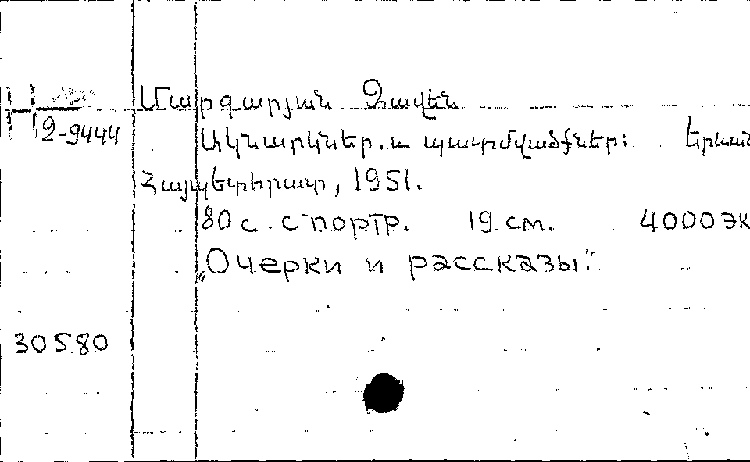 Մարգարյան Զավեն
2-9444
Ակնարկներ և պատմվածքներ։ Երևան
Հայպետհրատ, 1951.
80 с. с портр. 19 см. 4000 эк
„Очерки и рассказы."
30580